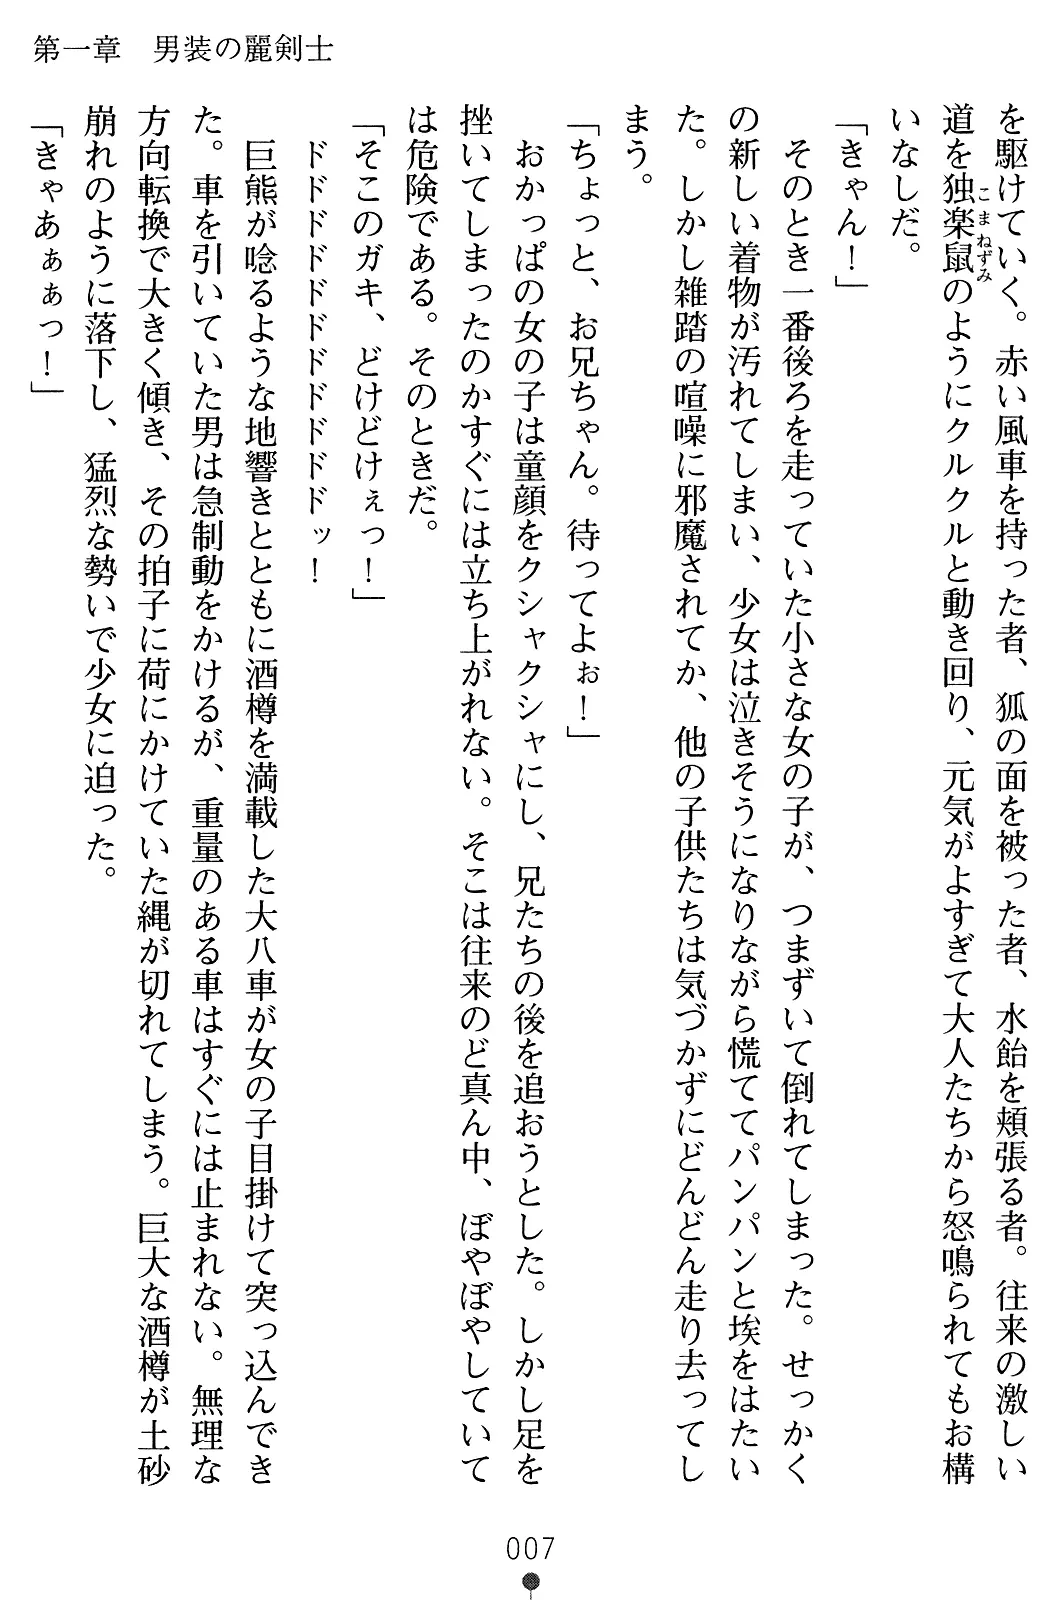 第一章　男装の麗剣士
を駆けていく。赤い風車を持った者、狐の面を被った者、水飴を頬張る者。往来の激しい
道を独楽鼠のようにクルクルと動き回り、元気がよすぎて大人たちから怒鳴られてもお構
こまねずみ
いなしだ。
「きゃん！」
　そのとき一番後ろを走っていた小さな女の子が、つまずいて倒れてしまった。せっかく
の新しい着物が汚れてしまい、少女は泣きそうになりながら慌ててパンパンと埃をはたい
た。しかし雑踏の喧噪に邪魔されてか、他の子供たちは気づかずにどんどん走り去ってし
まう。
「ちょっと、お兄ちゃん。待ってよぉ！」
　おかっぱの女の子は童顔をクシャクシャにし、兄たちの後を追おうとした。しかし足を
挫いてしまったのかすぐには立ち上がれない。そこは往来のど真ん中、ぼやぼやしていて
は危険である。そのときだ。
「そこのガキ、どけどけぇっ！」
　ドドドドドドドドドドッ！
　巨熊が唸るような地響きとともに酒樽を満載した大八車が女の子目掛けて突っ込んでき
た。車を引いていた男は急制動をかけるが、重量のある車はすぐには止まれない。無理な
方向転換で大きく傾き、その拍子に荷にかけていた縄が切れてしまう。巨大な酒樽が土砂
崩れのように落下し、猛烈な勢いで少女に迫った。
「きゃあぁぁっ！」
007